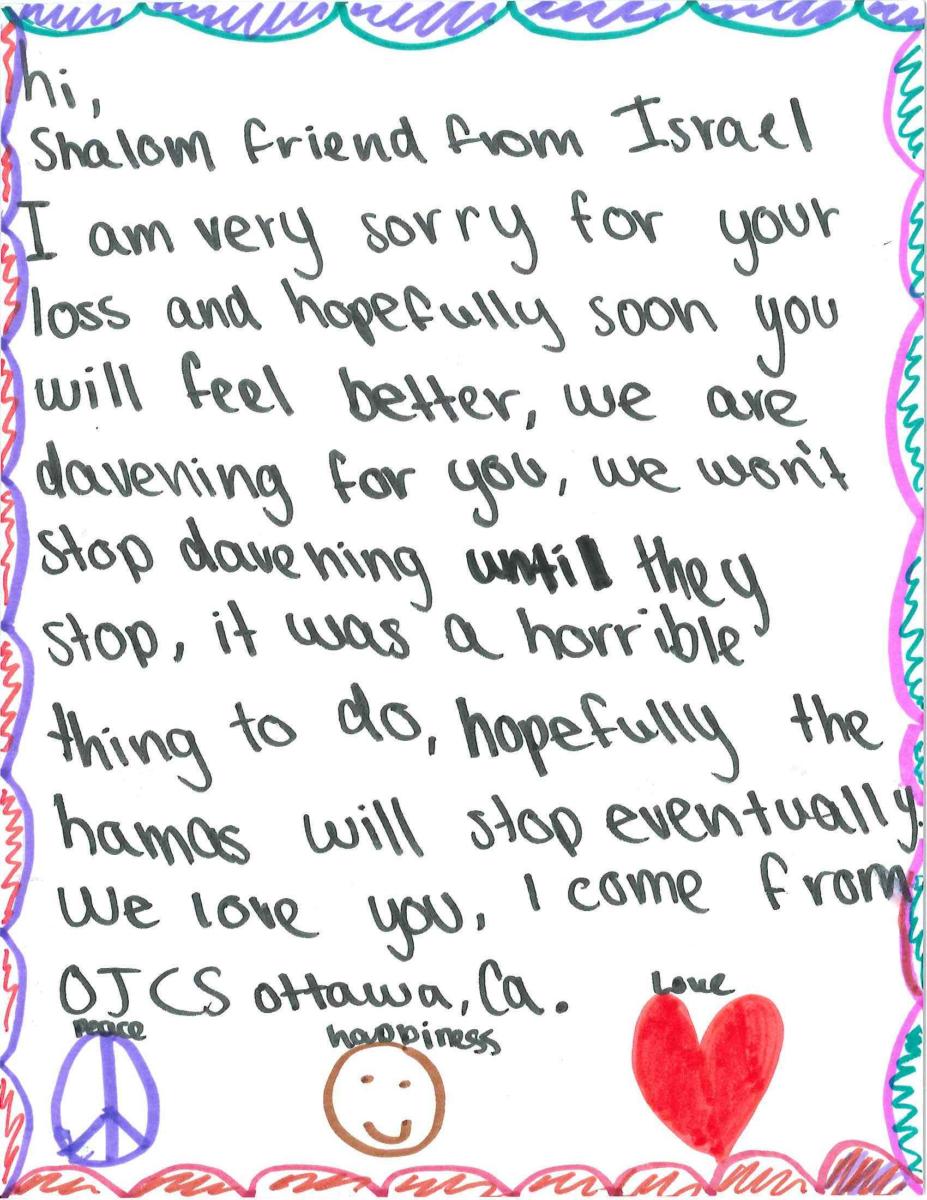 hi,
Shalom friend from Israel
I am very sorry for your
loss and hopefully soon you
will feel better, we are
davening for you, we won't
stop davening until they
stop, it was a horrible
thing to do, hopefully the
hamas will stop eventually.
We love you, I come from
OJCS Ottawa, Ca.
Peace happiness Love